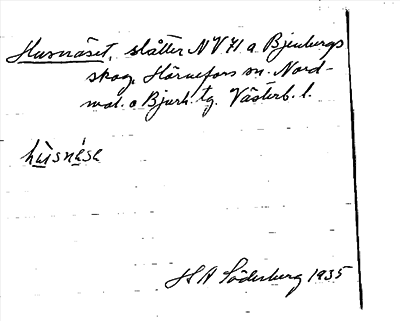 Husnäset, slåtter NV H a Bjenbergs
skog, Hörnefors sn. Nord-
mal. o Bjurh. tg. Västerb. l.
hùsnésə
H A Söderberg 1935